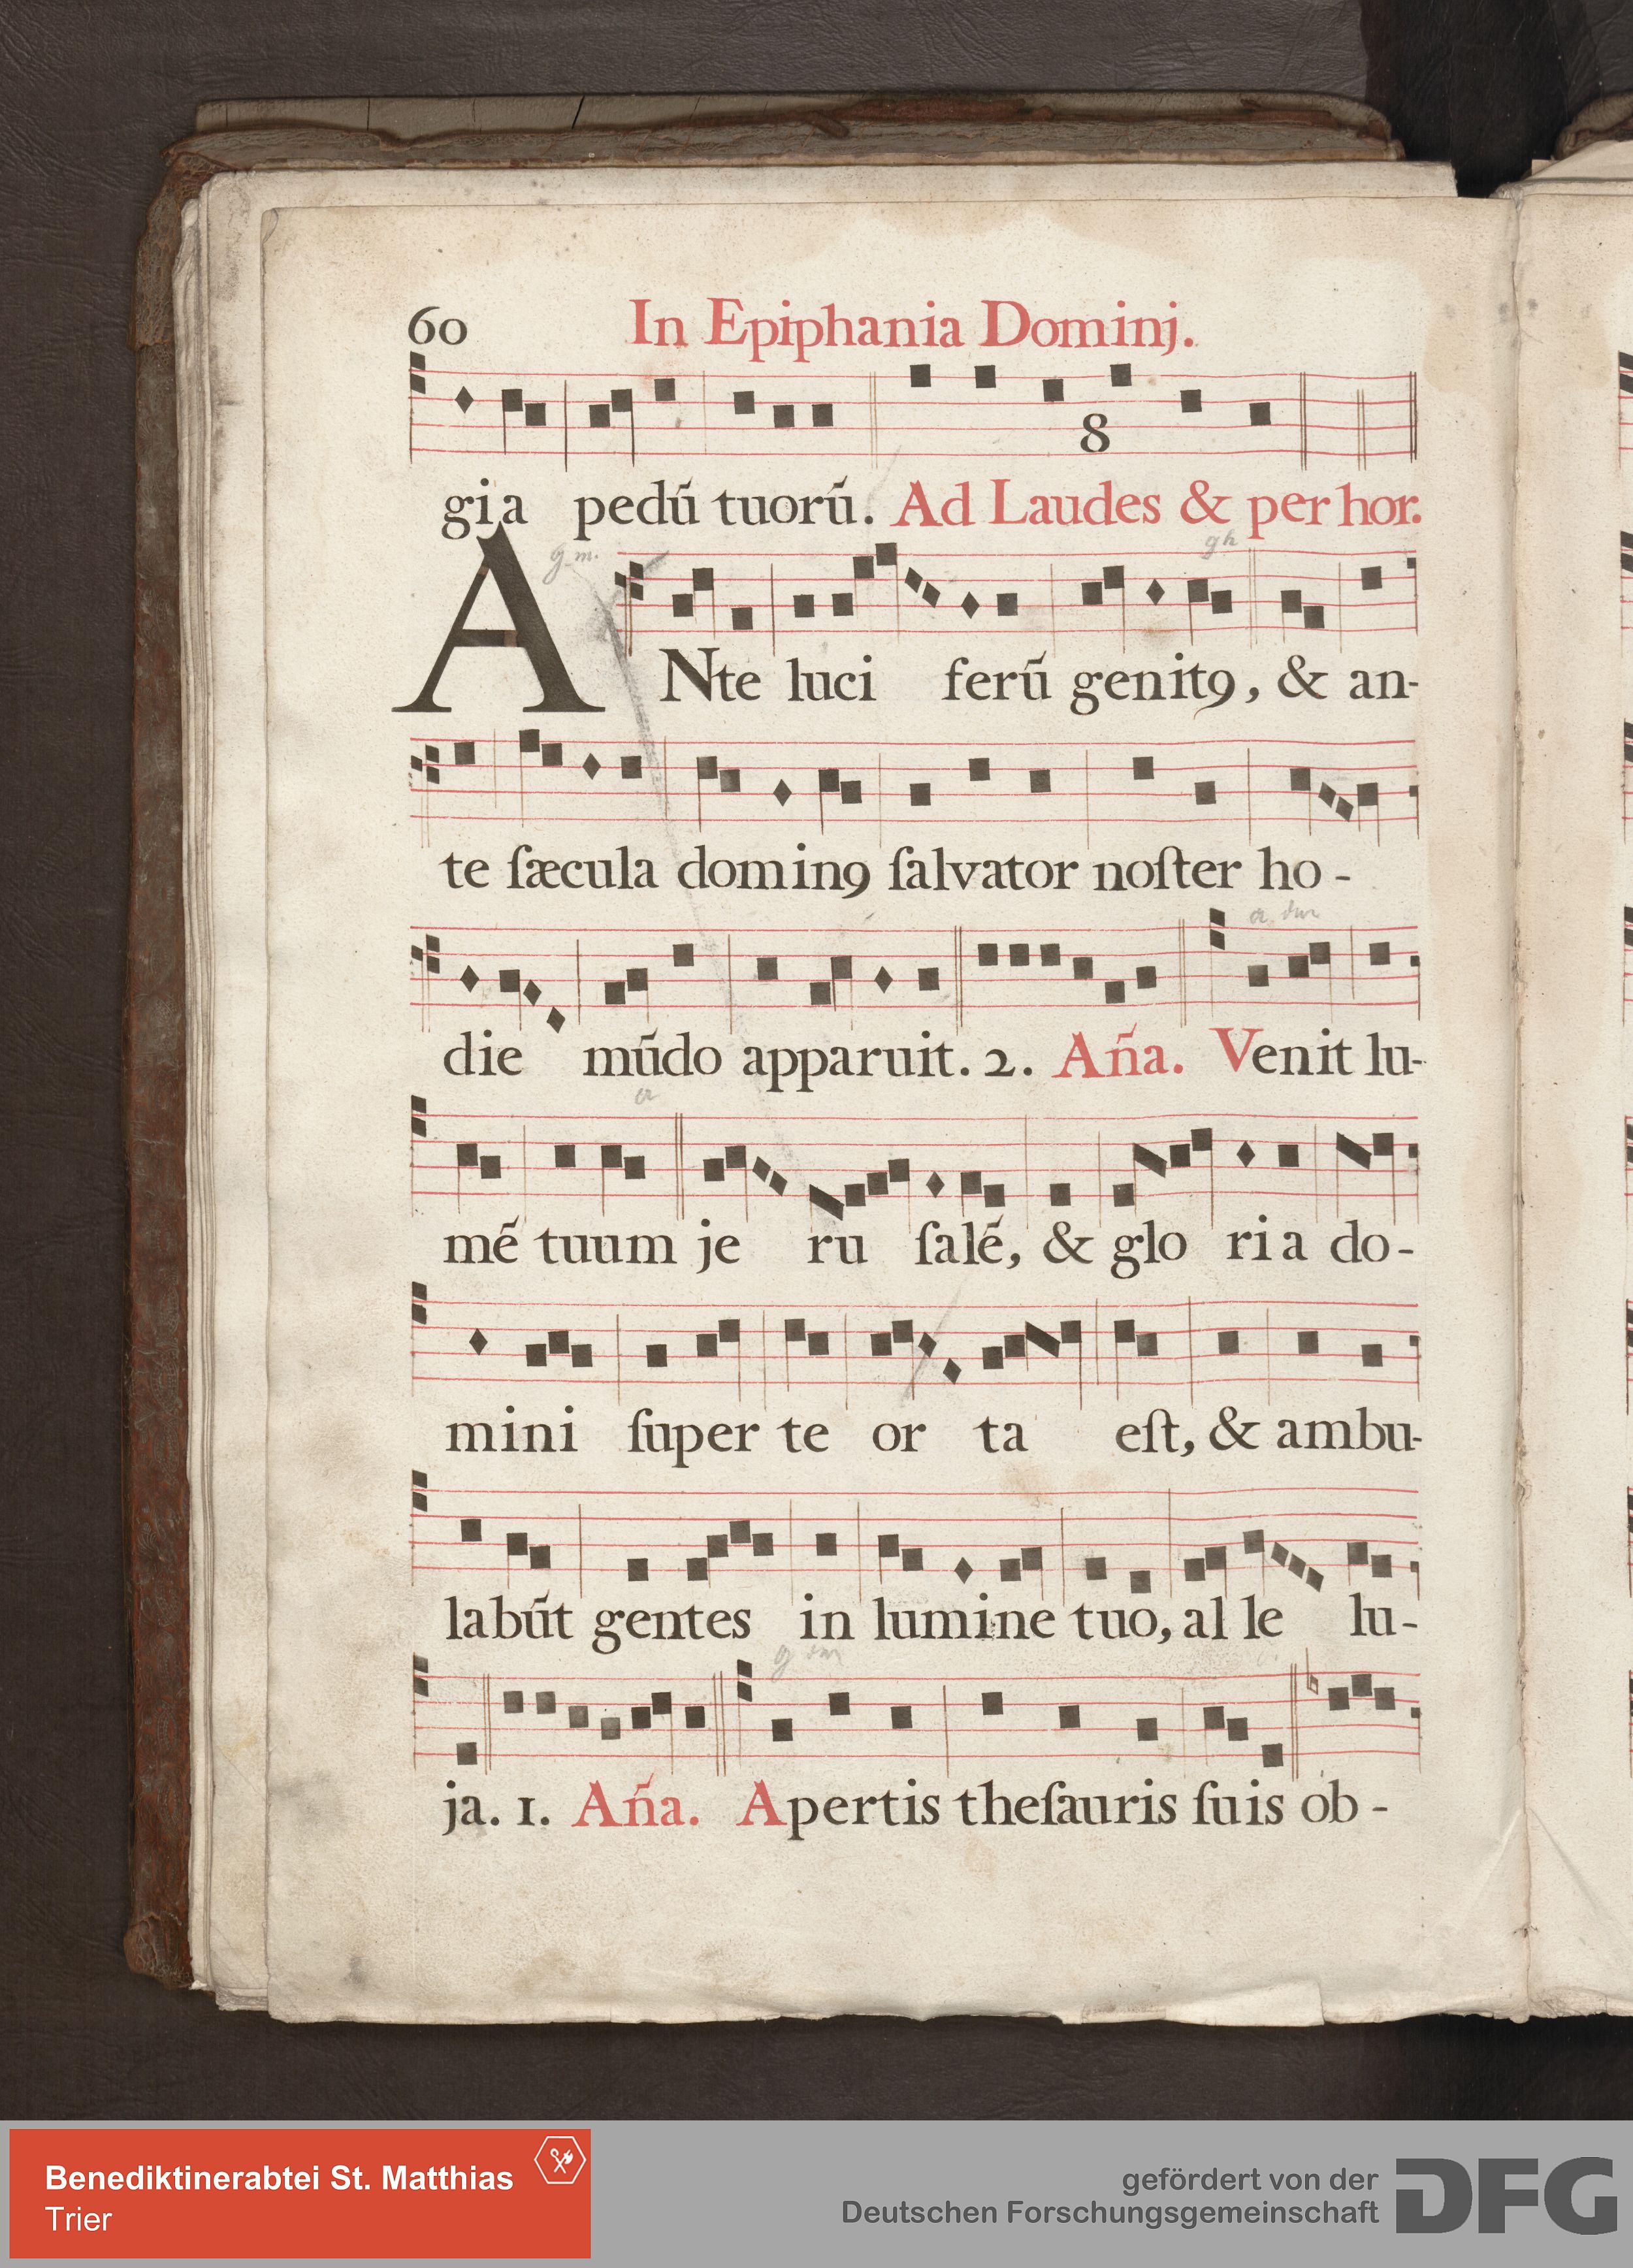 60 In Epiphania Dominj.
8
gia pedú tuorú. Ad Laudes & per hor.
g m.
gh
ANte luci ferú genitꝯ, & an-
te ſæcula dominꝯ ſalvator noſter ho-
die mũdo apparuit. 2. Aña. Venit lu-
mé tuum je ru ſalé, & glo ria do-
mini ſuper te or ta eſt, & ambu-
labút gentes in lumine tuo, al le lu-
ja. 1. Aña. Apertis theſauris ſuis ob-
Benediktinerabtei St. Matthias
Trier
gefördert von der
Deutschen Forschungsgemeinschaft
DFG